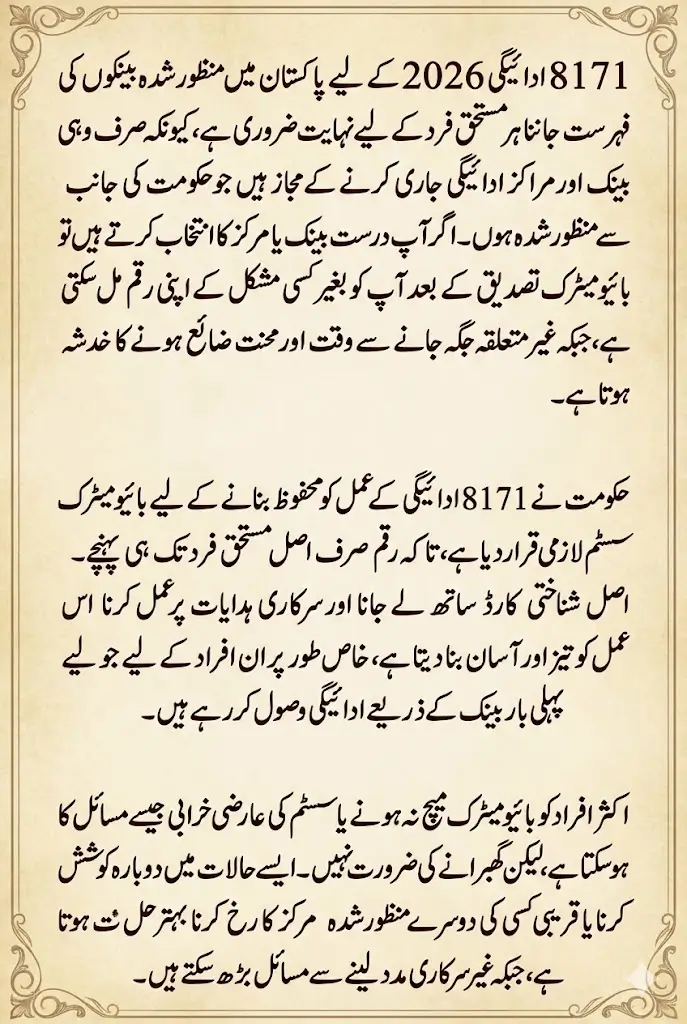 8171 ادائیگی 2026 کے لیے پاکستان میں منظور شدہ بینکوں کی
فہرست جاننا ہر مستحق فرد کے لیے نہایت ضروری ہے، کیونکہ صرف وہی
بینک اور مراکز ادائیگی جاری کرنے کے مجاز ہیں جو حکومت کی جانب
سے منظور شدہ ہوں۔ اگر آپ درست بینک یا مرکز کا انتخاب کرتے ہیں تو
بائیومیٹرک تصدیق کے بعد آپ کو بغیر کسی مشکل کے اپنی رقم مل سکتی
ہے، جبکہ غیر متعلقہ جگہ جانے سے وقت اور محنت ضائع ہونے کا خدشہ
ہوتا ہے۔
حکومت نے 8171 ادائیگی کے عمل کو محفوظ بنانے کے لیے بائیومیٹرک
سسٹم لازمی قرار دیا ہے، تاکہ رقم صرف اصل مستحق فرد تک ہی پہنچے۔
اصل شناختی کارڈ ساتھ لے جانا اور سرکاری ہدایات پر عمل کرنا اس
عمل کو تیز اور آسان بنا دیتا ہے، خاص طور پر ان افراد کے لیے جو لیے
پہلی بار بینک کے ذریعے ادائیگی وصول کر رہے ہیں۔
اکثر افراد کو بائیومیٹرک میچ نہ ہونے یا سسٹم کی عارضی خرابی جیسے مسائل کا
ہو سکتا ہے، لیکن گھبرانے کی ضرورت نہیں۔ ایسے حالات میں دوبارہ کوشش
کرنا یا قریبی کسی کی دوسرے منظور شدہ مرکز کا رخ کرنا بہتر حل ہوتا
ہے، جبکہ غیر سرکاری مدد لینے سے مسائل بڑھ سکتے ہیں۔